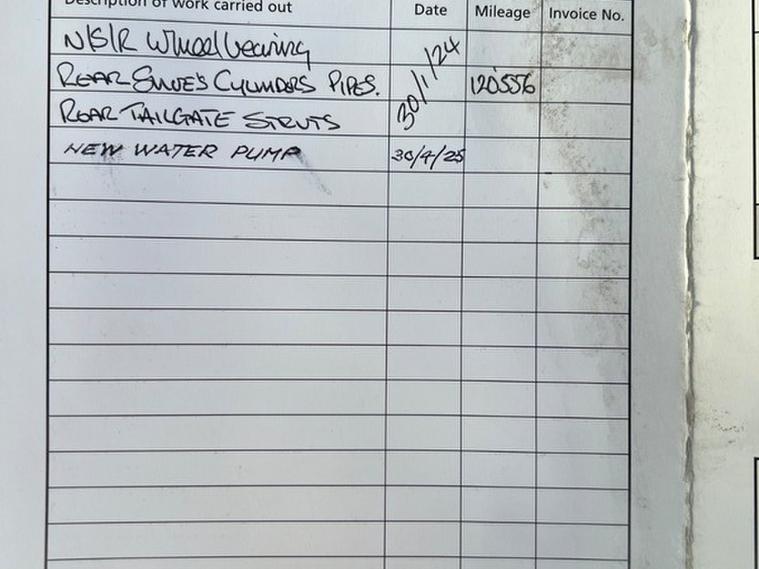 Description of work carried out Date Mileage Invoice No.
N/S/R Wheel bearing
REAR SHOE'S CYLINDERS PIPES. 30/1/24 120556
REAR TAILGATE STRUTS
NEW WATER PUMP 30/4/25